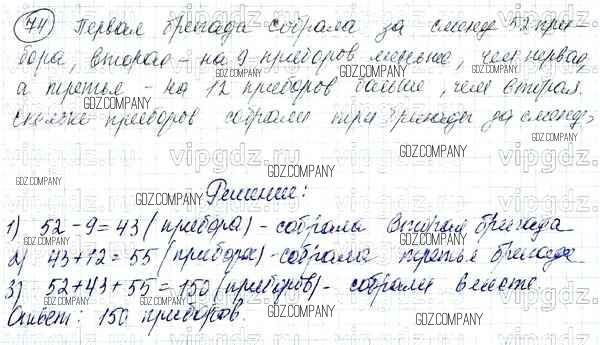 74 Первая бригада собрала за смену 52 при-
бора, вторая - на 9 приборов меньше, чем первая,
а третья - на 12 приборов больше, чем вторая.
Сколько приборов собрали три бригады за смену?
Решение:
1) 52 - 9 = 43 (прибора) - собрала вторая бригада
2) 43 + 12 = 55 (прибора) - собрала третья бригада
3) 52 + 43 + 55 = 150 (приборов) - собрали вместе
Ответ: 150 приборов.
GDZ.COMPANY
vipgdz.ru